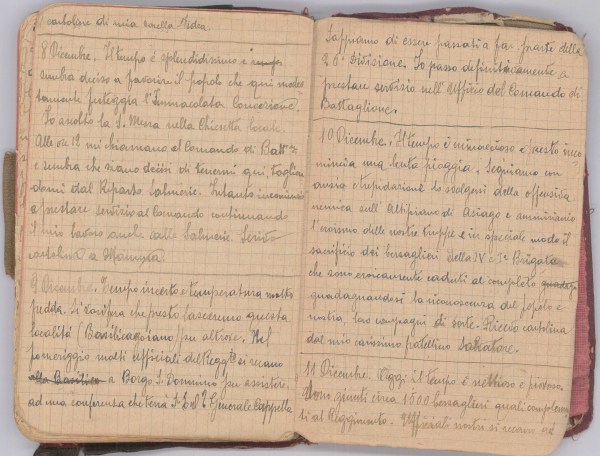 cartolina di mia sorella Medea
8 Dicembre. Il tempo è splendidissimo e
sembra deciso a favorire il popolo che qui modes
tamente festeggia l'Immacolata Concezione.
Io ascolto la S. Messa nella Chiesetta locale
Alle ore 12 mi chiamano al Comando di Batt.ne
e sembra che siano decisi di tenermi qui, toglien
domi dal Reparto Salmerie. Intanto incomincio
a prestare servizio al Comando continuando
il mio lavoro anche alle Salmerie. Scrivo
cartolina a Mammà
9 Dicembre. Tempo incerto e temperatura molto
fredda. Si vocifera che presto lasceremo questa
località (Basilicagoiano) per altrove. Nel
pomeriggio molti ufficiali del Regg.to si recano
alla Basilica a Borgo S. Donnino per assistere
ad una conferenza che terrà S. E. il Generale Cappello
Sappiamo di essere passati a far parte della
26ª Divisione. Io passo definitivamente a
prestare servizio nell'Ufficio del Comando di
Battaglione.
10 Dicembre. Il tempo è minaccioso e presto inco
mincia una lenta pioggia. Seguiamo con
ansia e trepidazione lo svolgersi della offensiva
nemica sull'Altipiano di Asiago e ammiriamo
l'eroismo delle nostre truppe e in speciale modo il
sacrificio dei bersaglieri della IV e Iª Brigata
che sono eroicamente caduti al completo
guadagnandosi la riconoscenza del popolo e
nostra, loro compagni di sorte. Ricevo cartolina
dal mio carissimo fratellino Salvatore.
11 Dicembre. Oggi il tempo è nebbioso e piovoso
Sono giunti circa 1500 bersaglieri quali complemen
ti al Reggimento. Ufficiali nostri si recano ad